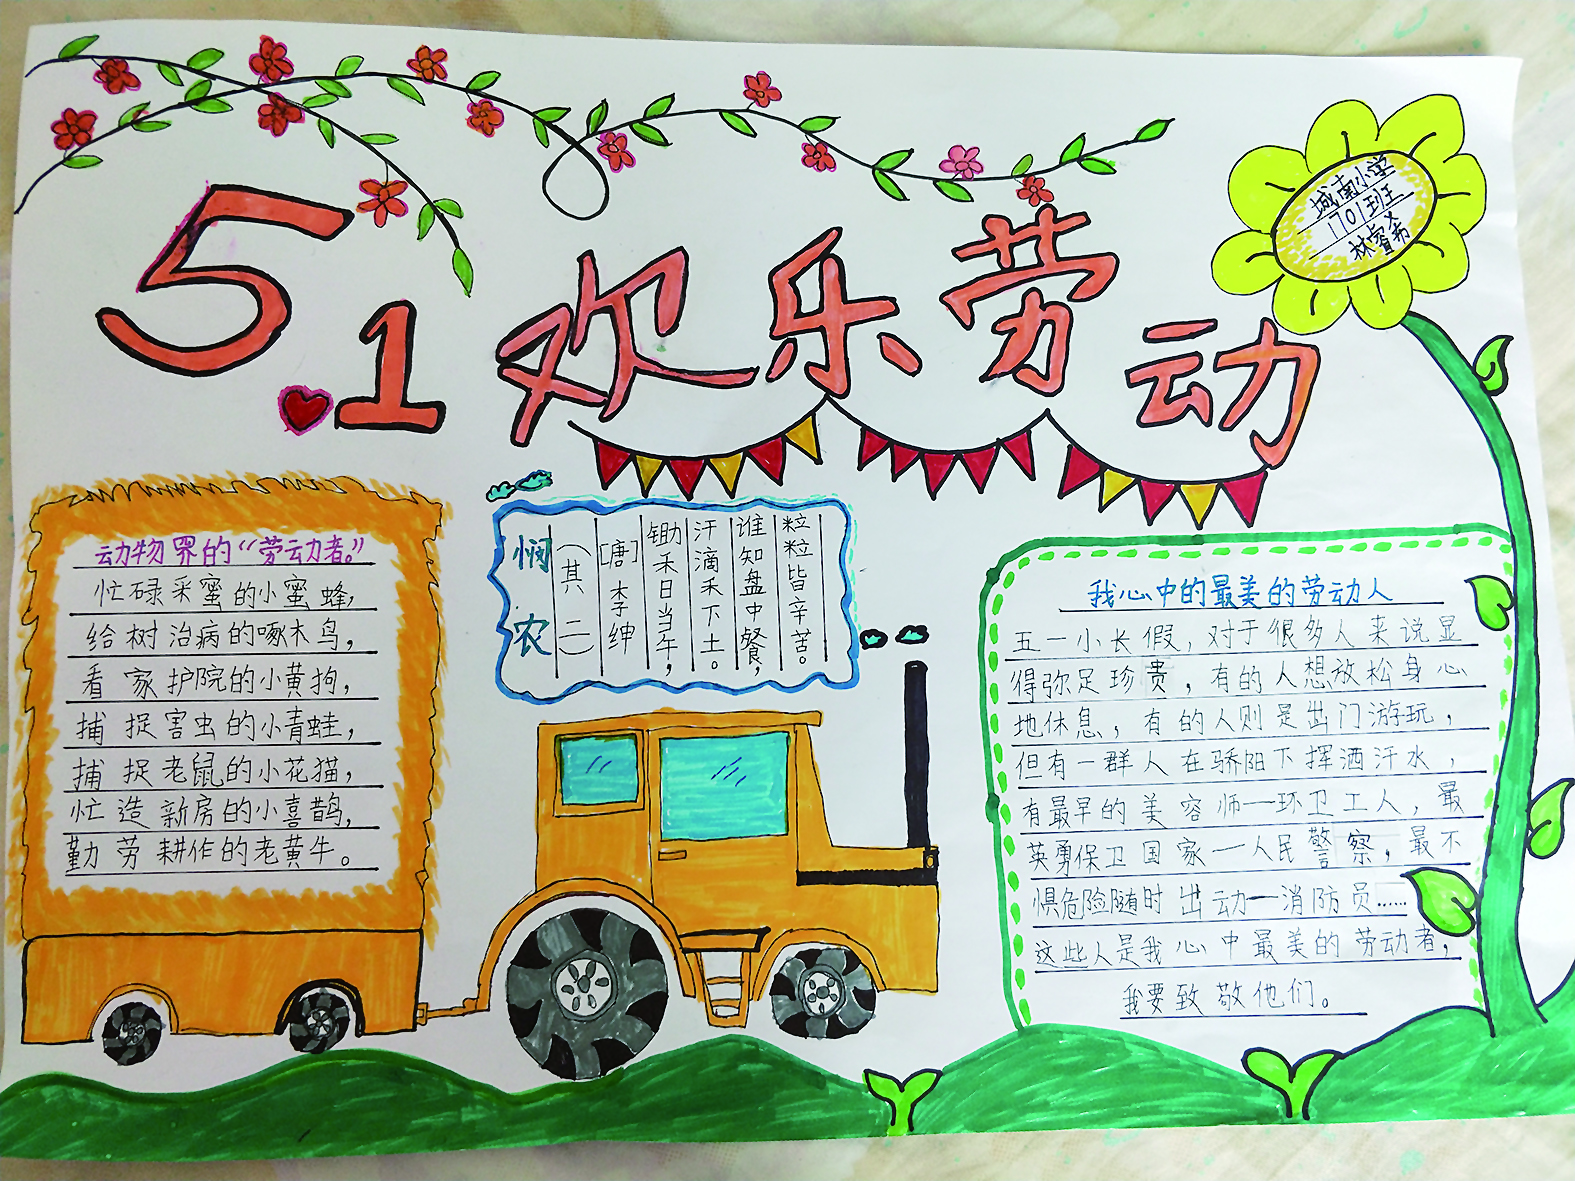 5.1欢乐劳动
城南小学
1701班
林睿希
动物界的“劳动者。”
忙碌采蜜的小蜜蜂，
给树治病的啄木鸟，
看家护院的小黄狗，
捕捉害虫的小青蛙，
捕捉老鼠的小花猫，
忙造新房的小喜鹊，
勤劳耕作的老黄牛。
悯农
（其二）
[唐]李绅
锄禾日当午，
汗滴禾下土。
谁知盘中餐，
粒粒皆辛苦。
我心中的最美的劳动人
五一小长假，对于很多人来说显
得弥足珍贵，有的人想放松身心
地休息，有的人则是出门游玩，
但有一群人在骄阳下挥洒汗水，
有最早的美容师—环卫工人，最
英勇保卫国家—人民警察，最不
惧危险随时出动—消防员……
这些人是我心中最美的劳动者，
我要致敬他们。